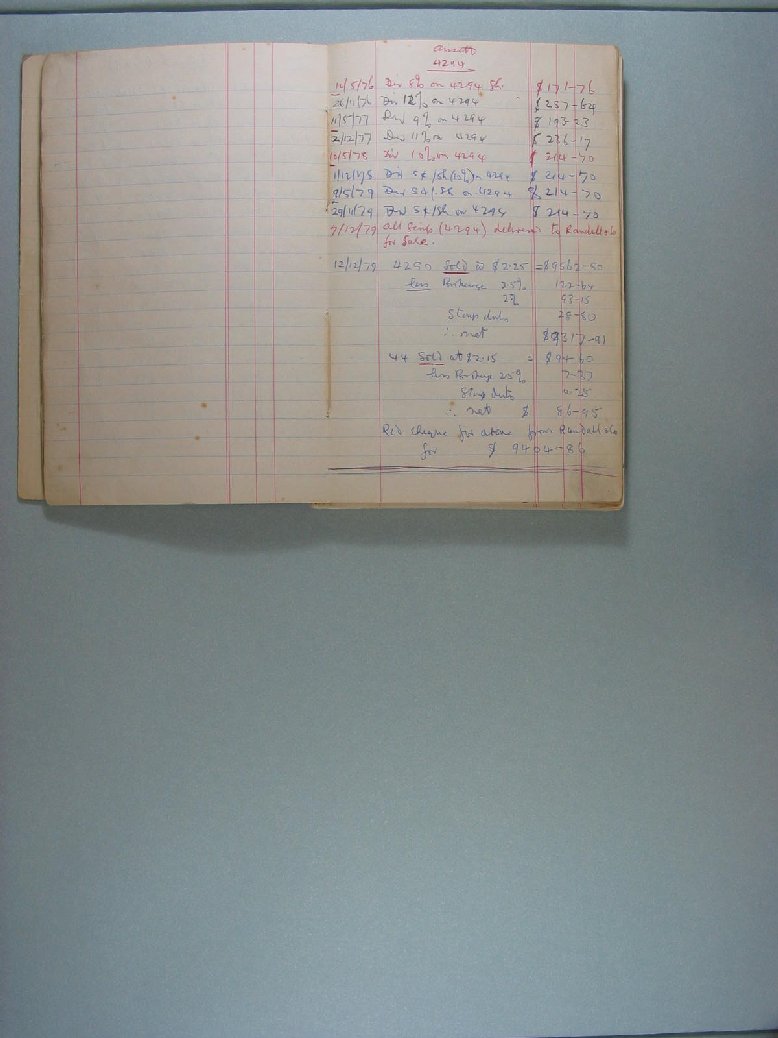 4294
12/5/76 Div 8% on 4294 Sh. $171-76
26/11/76 Div 12% on 4294 $257-64
11/5/77 Div 9% on 4294 $193-23
2/12/77 Div 11% on 4294 $236-17
10/5/78 Div 10% on 4294 $214-70
1/12/78 Div 5¢/Sh (10%) on 4294 $214-70
9/5/79 Div 5¢/Sh on 4294 $214-70
29/11/79 Div 5¢/Sh on 4294 $214-70
7/12/79 All Scrips (4294) delivered to Randall & Co
for Sale.
12/12/79 4250 Sold @ $2.25 = $9562-50
less Brokerage 2.5% 122-64
2% 93-15
Stamp duty 28-80
∴ nett $9317-91
44 Sold at $2.15 = $94-60
less Brokerage 2.5% 7-37
Stamp duty 0-25
∴ nett $ 86-95
Rec'd cheque for above from Randall & Co
for $ 9404-86